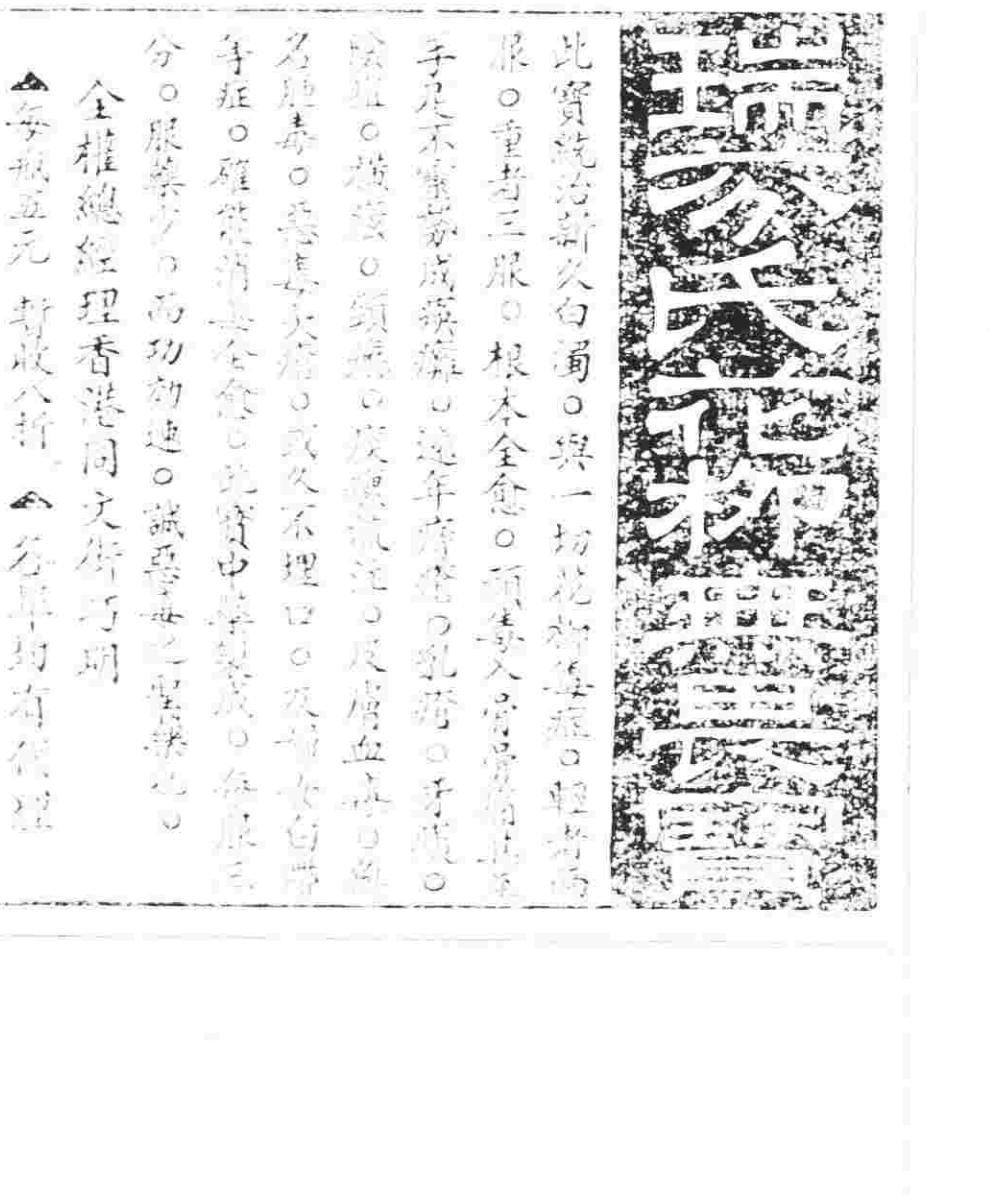 瑞芬氏花柳無畏寶
此寶統治新久白濁○與一切花柳毒症○輕者兩
服○重者三服○根本全愈○頭毒入骨骨痛甚至
手足不靈務成瘓○遠年疔瘡○乳瘡○牙疳○
陰疽○橫痃○頸癧○痰㿔流注○皮膚血毒○無
名腫毒○恙毒大瘡○或久不埋口○及婦女白帶
等症○確能消毒全愈○此寶中藥製成○每服三
分○服藥少○而功効速○誠惡毒之聖藥也○
全權總經理香港同文街巧明
每瓶五元 暫收八折 各埠均有代理